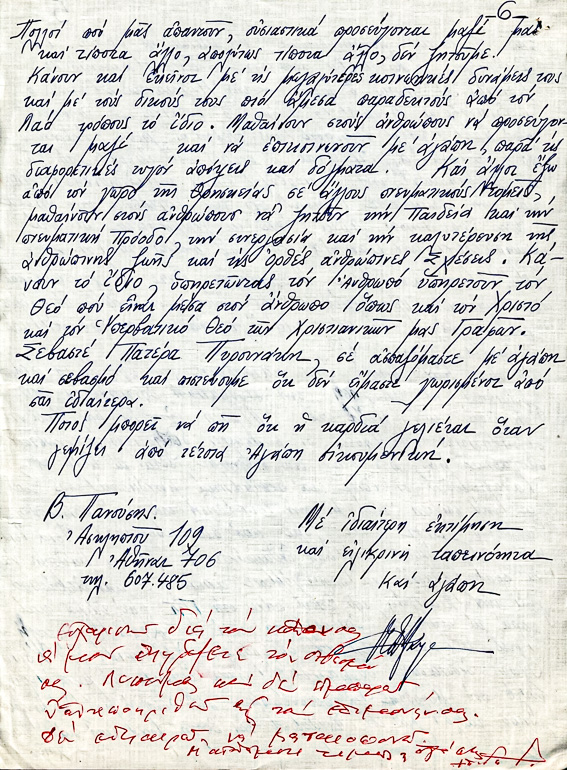 6
Πολλοί πού μᾶς ἀπαντοῦν, οὐσιαστικά προσεύχονται μαζί μας
καί τίποτα ἄλλο, ἀπολύτως τίποτα ἄλλο, δέν ζητοῦμε.
Κάνουν καί ἐκεῖνοι μέ τίς μεγαλύτερες κοινωνικές δυνάμεις τους
καί μέ τούς δικούς τους πιό ἄμεσα παραδεκτούς ἀπό τόν
Λαό τρόπους τό ἴδιο. Μαθαίνουν στούς ἀνθρώπους νά προσεύχον
ται μαζί καί νά ἐπικοινωνοῦν μέ ἀγάπη, παρά τίς
διαφορετικές τυχόν ἀπόψεις καί δόγματα. Καί ἄλλοι ἔξω
ἀπό τόν χῶρο τῆς θρησκείας σέ ἄλλους πνευματικούς Τομεῖς,
μαθαίνουν στούς ἀνθρώπους νά ζητοῦν τήν Παιδεία καί τήν
πνευματική Πρόοδο, τήν συνεργασία καί τήν καλυτέρευση τῆς
ἀνθρώπινης ζωῆς καί τίς ὀρθές ἀνθρώπινες Σχέσεις. Κά-
νουν τό ἴδιο, ὑπηρετῶντας τόν Ἄνθρωπο ὑπηρετοῦν τόν
Θεό πού εἶναι μέσα στόν ἄνθρωπο ὅπως καί τόν Χριστό
καί τόν Ὑπερβατικό Θεό τῶν Χριστιανικῶν μας Γραφῶν.
Σεβαστέ Πατέρα Πυρουνάκη, σέ ἀσπαζόμαστε μέ ἀγάπη
καί σεβασμό καί πιστεύουμε ὅτι δέν εἴμαστε χωρισμένοι ἀπό
σᾶς ἰδιαίτερα.
Ποιός μπορεῖ νά πῆ ὅτι ἡ καρδιά γελιέται ὅταν
γεμίζει ἀπό τέτοια Ἀγάπη οἰκουμενική.
Β. Πανούσης
Ἀσκληπιοῦ 109
Ἀθῆναι 706
τηλ. 607.485
Μέ ἰδιαίτερη ἐκτίμηση
καί εἰλικρινή ταπεινότητα
Καί ἀγάπη
διά τόν
καί δέν
Δέν νά